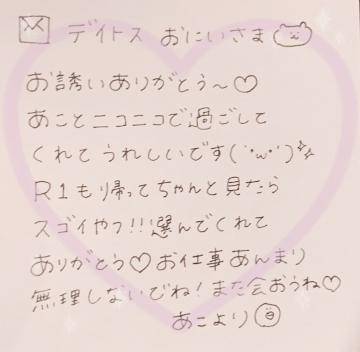 デイトス おにいさま
お誘いありがとう〜♡
あことニコニコで過ごして
くれてうれしいです(˙ω˙)
R1もり帰ってちゃんと見たら
スゴイやつ!!選んでくれて
ありがとう♡お仕事あんまり
無理しないでね!また会おうね♡
あこより